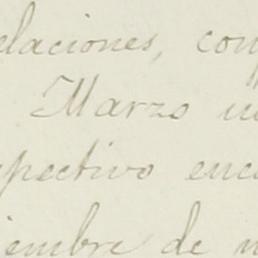 elaciones, con
Marzo
spectivo enc
iembre de